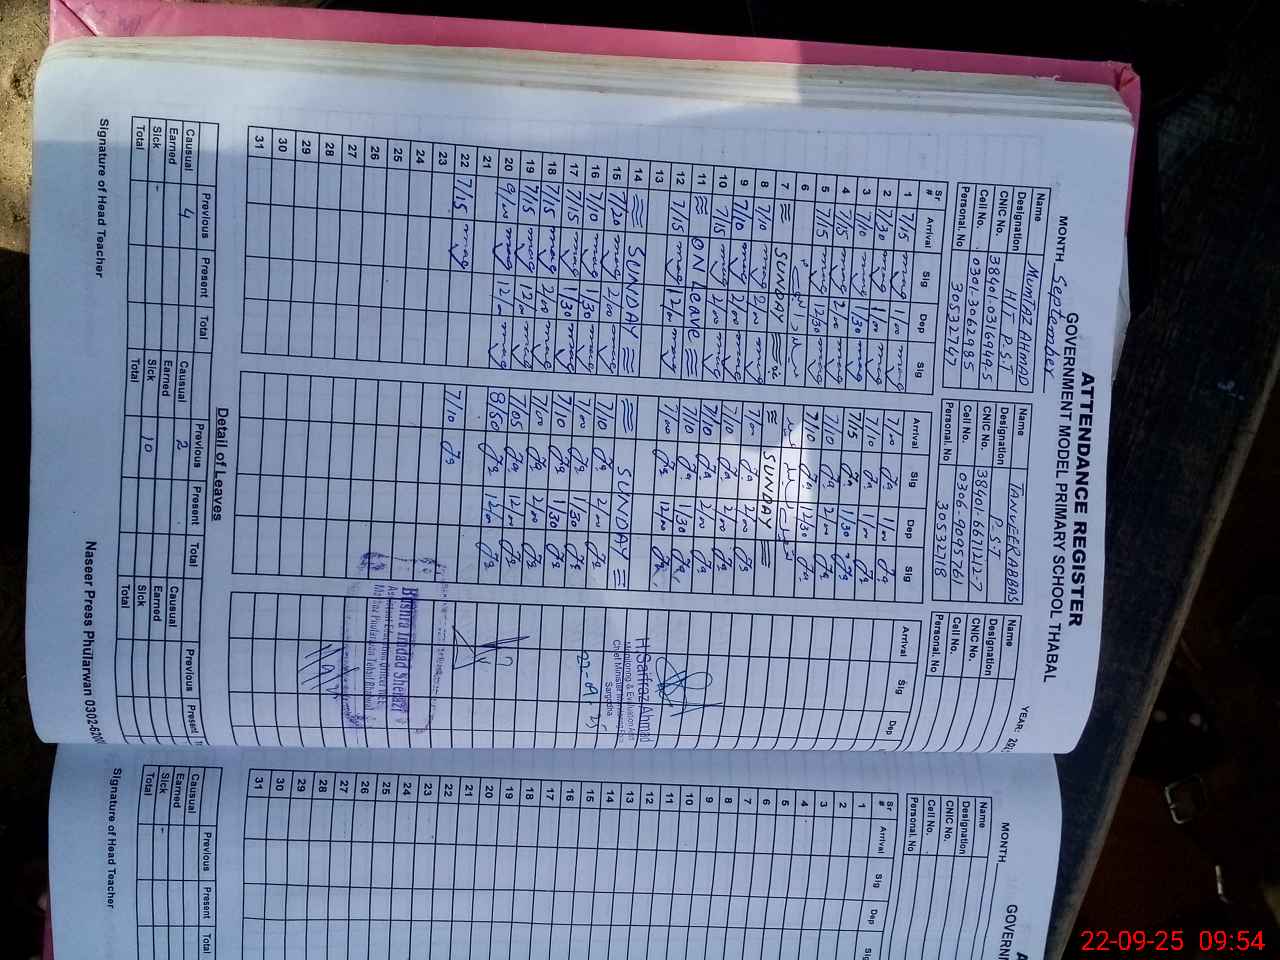 ATTENDANCE REGISTER
GOVERNMENT MODEL PRIMARY SCHOOL THABAL
MONTH September YEAR:
Name MUMTAZ AHMAD
Designation H/T P.S.T
CNIC No. 38401-0316949-5
Cell No. 0301-3062985
Personal. No 30532747
Name TANVEER ABBAS
Designation P.S.T
CNIC No. 38401-6671212-7
Cell No. 0306-9095761
Personal. No 30532718
Name
Designation
CNIC No.
Cell No.
Personal. No
Sr # Arrival Sig Dep Sig Arrival Sig Dep Sig Arrival Sig Dep
1 7/15 maq 1/00 maq 7/00 1/00
2 7/30 maq 1/00 maq 7/10 1/00
3 7/10 maq 1/30 maq 7/15 1/30
4 7/15 maq 2/00 maq 7/10 2/00
5 7/15 maq 12/30 maq 7/10 12/30
6
7 SUNDAY SUNDAY
8 7/10 maq 2/00 maq 7/00 2/00
9 7/10 maq 2/00 maq 7/10 2/00
10 7/15 maq 2/00 maq 7/10 2/00
11 ON Leave 7/10 1/30
12 7/15 maq 12/00 maq 7/00 12/00
13
14 SUNDAY SUNDAY
15 7/20 maq 2/00 maq 7/10 2/00
16 7/10 maq 1/30 maq 7/00 1/30
17 7/15 maq 1/30 maq 7/10 1/30
18 7/15 maq 2/00 maq 7/00 2/00
19 7/15 maq 12/00 maq 7/05 12/00
20 maq 12/00 maq 8/50 12/00
21
22 7/15 maq 7/10
23
24
25
26
27
28
29
30
31
H Sarfraz Ahmad
Monitoring & Evaluation
Chief Minister
Sargodha
22-09-25
Bushra Imdad Sherazi
Assistant Education Officer
Markaz Phularwan Tehsil Bhalwal
Detail of Leaves
Previous Present Total Previous Present Total Previous Present
Causual 4 Causual 2 Causual
Earned Earned Earned
Sick - Sick 10 Sick
Total Total Total
Signature of Head Teacher
Naseer Press Phularwan 0302-620
MONTH
GOVERN
Name
Designation
CNIC No.
Cell No.
Personal. No
Sr # Arrival Sig Dep Sig
1
2
3
4
5
6
7
8
9
10
11
12
13
14
15
16
17
18
19
20
21
22
23
24
25
26
27
28
29
30
31
Previous Present Total
Causual
Earned
Sick -
Total
Signature of Head Teacher
22-09-25 09:54